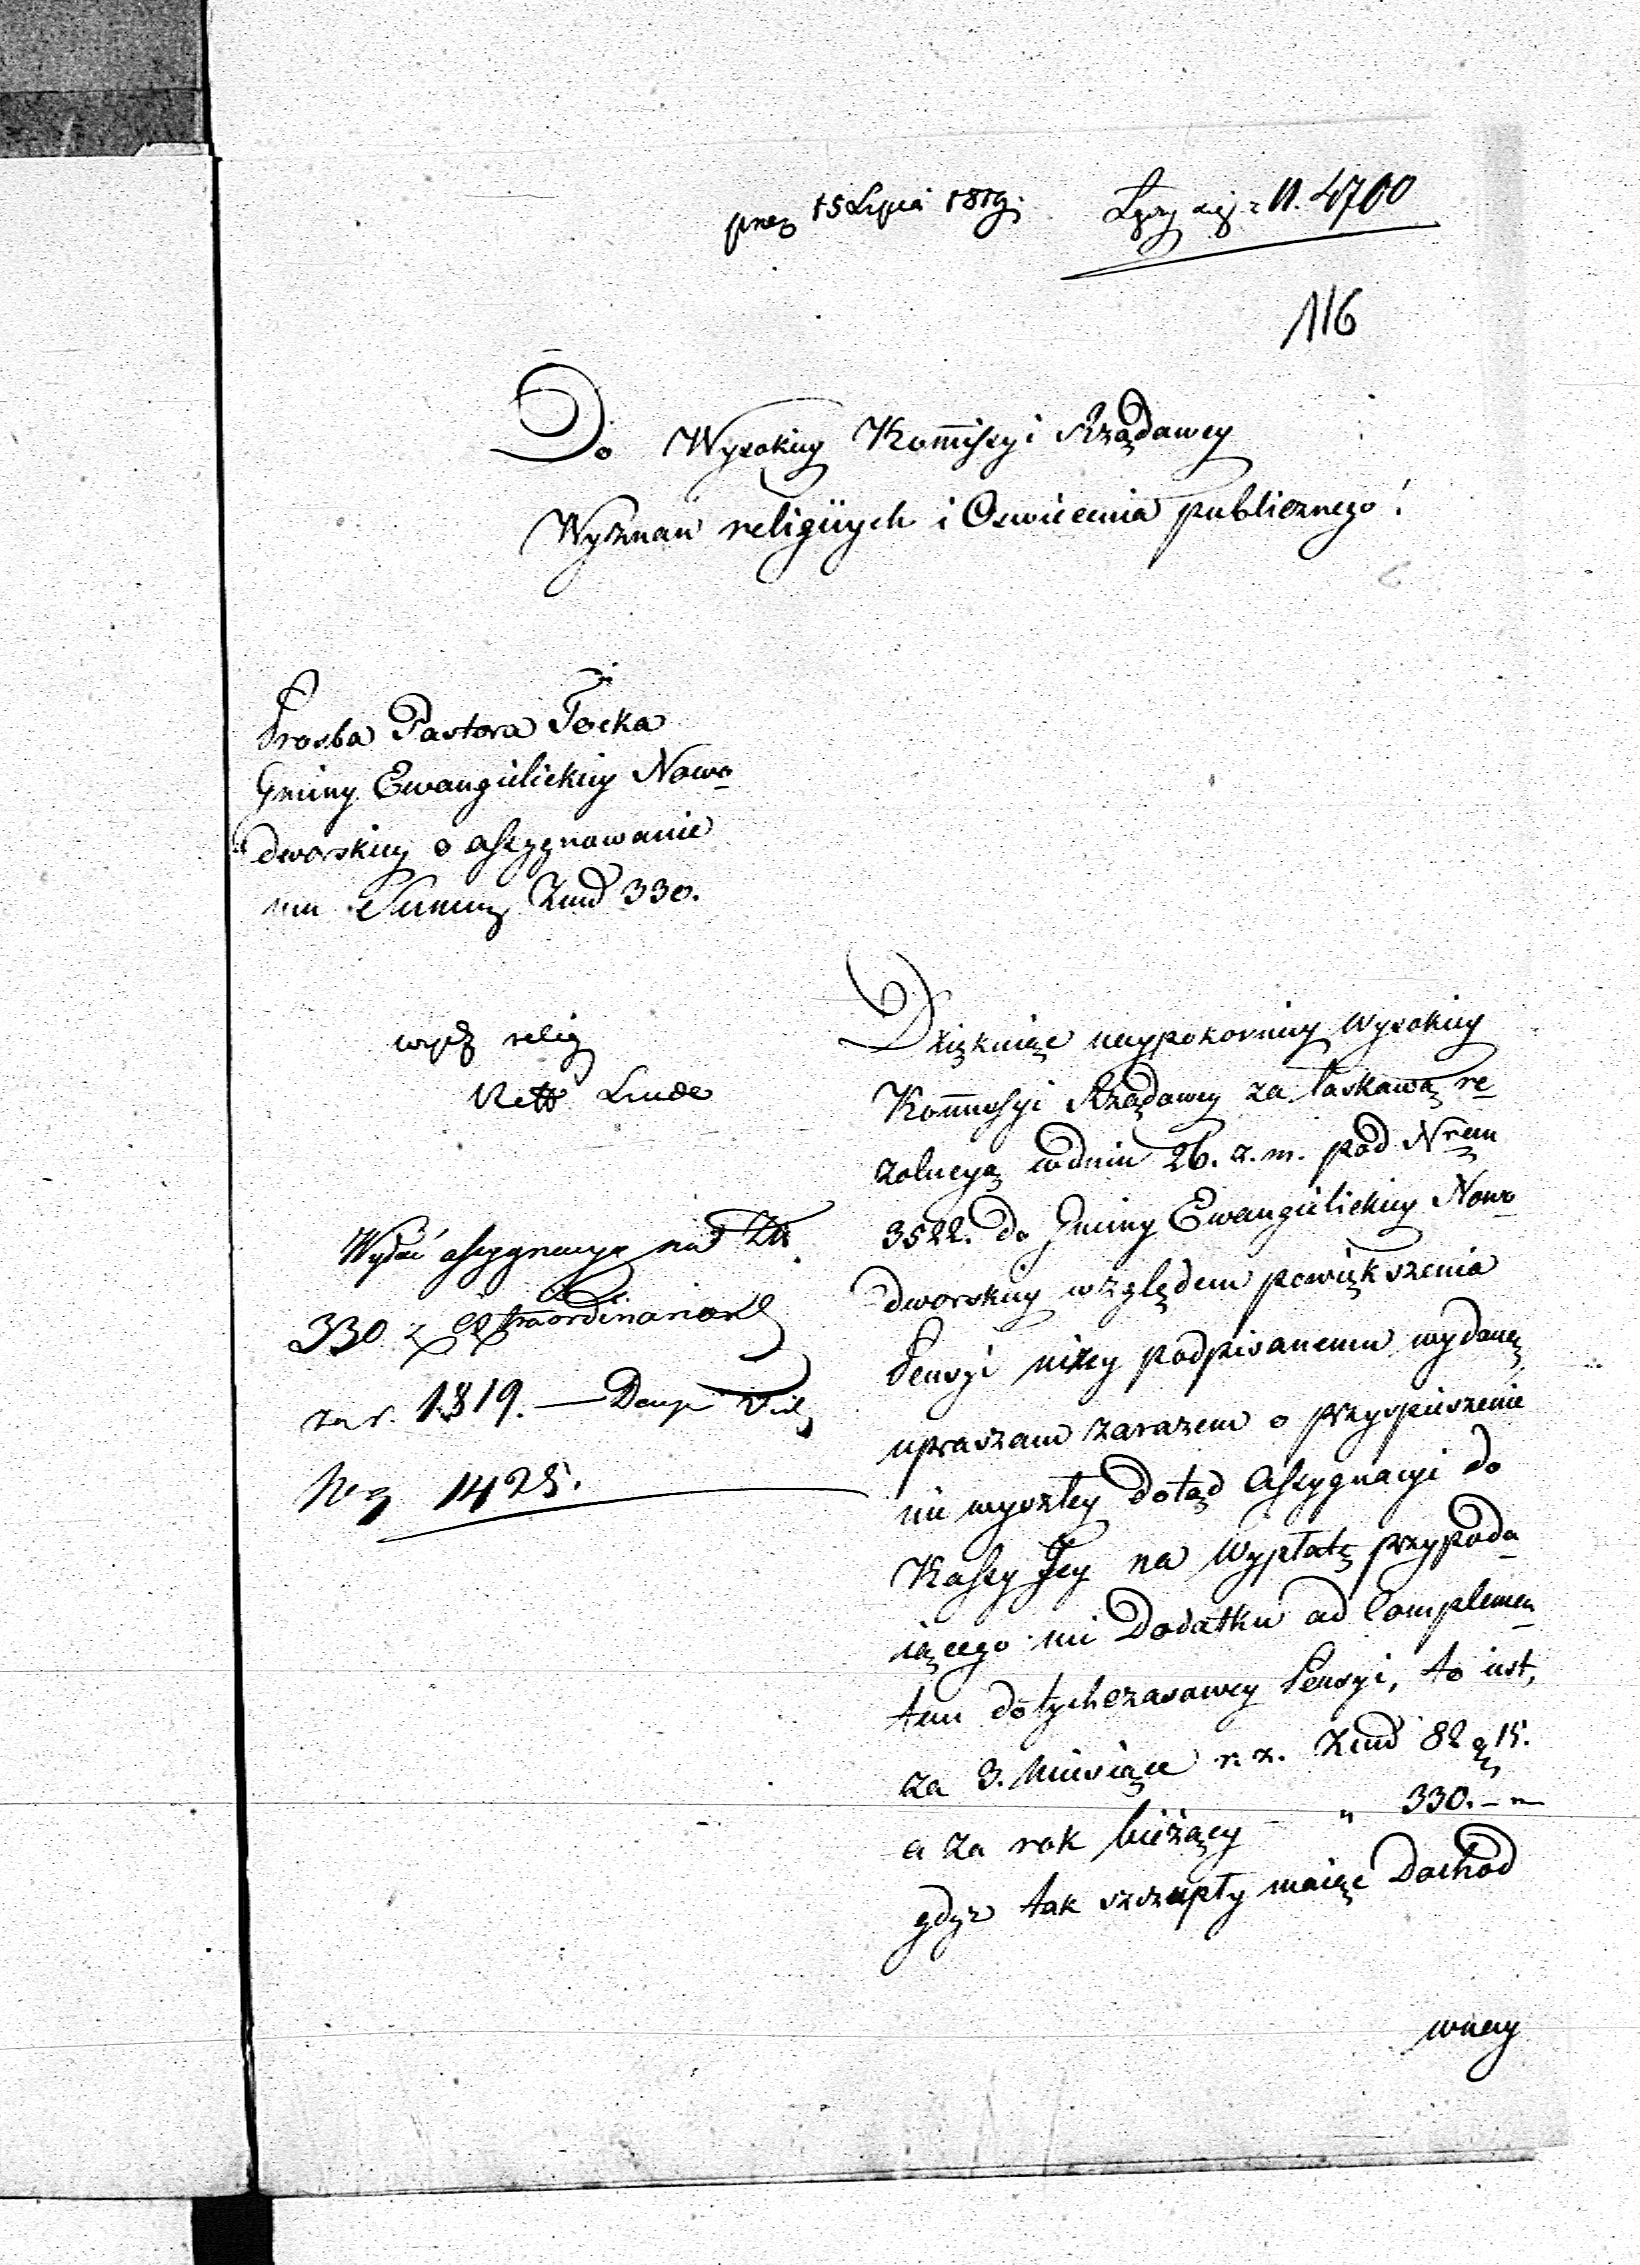 prez 15 Lipca 1819.
Łączy się z N. 4700
116
Do Wysokiey Kommissyi Rządowey
Wyznań religiiych i Oswiecenia publicznego!
Prosba Pastora Tocka
Gminy Ewangielickiey Nowo-
dworskiey o assygnowanie
mu Summy Zł 330.
wydz relig
Linde
Wydać assygnacyę na Zł
330 z extraordinarium
za r. 1819. —
1425.
Dziękuiąc naypokorniey Wysokiey
Kommissyi Rządowey za łaskawą re-
zolucyą w dniu 26. z. m. pod Nrem
3522. do Gminy Ewangielickiey Nowo-
dworskiey względem powiększenia
Pensyi niżey podpisanemu wydaną,
upraszam zarazem o przyspieszenie
nie wyszłey dotąd Assygnacyi do
Kassy Jey na Wypłatę przypada-
iącego mi Dodatku ad Complemen-
tum dotychczasowey Pensyi, to iest,
za 3. Miesiące r. z. Zł 82 g 15.
a za rok bieżący - " 330. - "
gdyż tak szczupły maiąc Dochód